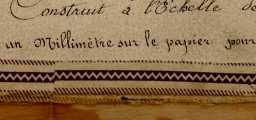 Construit à l'Echelle de
un Millimètre sur le papier pour